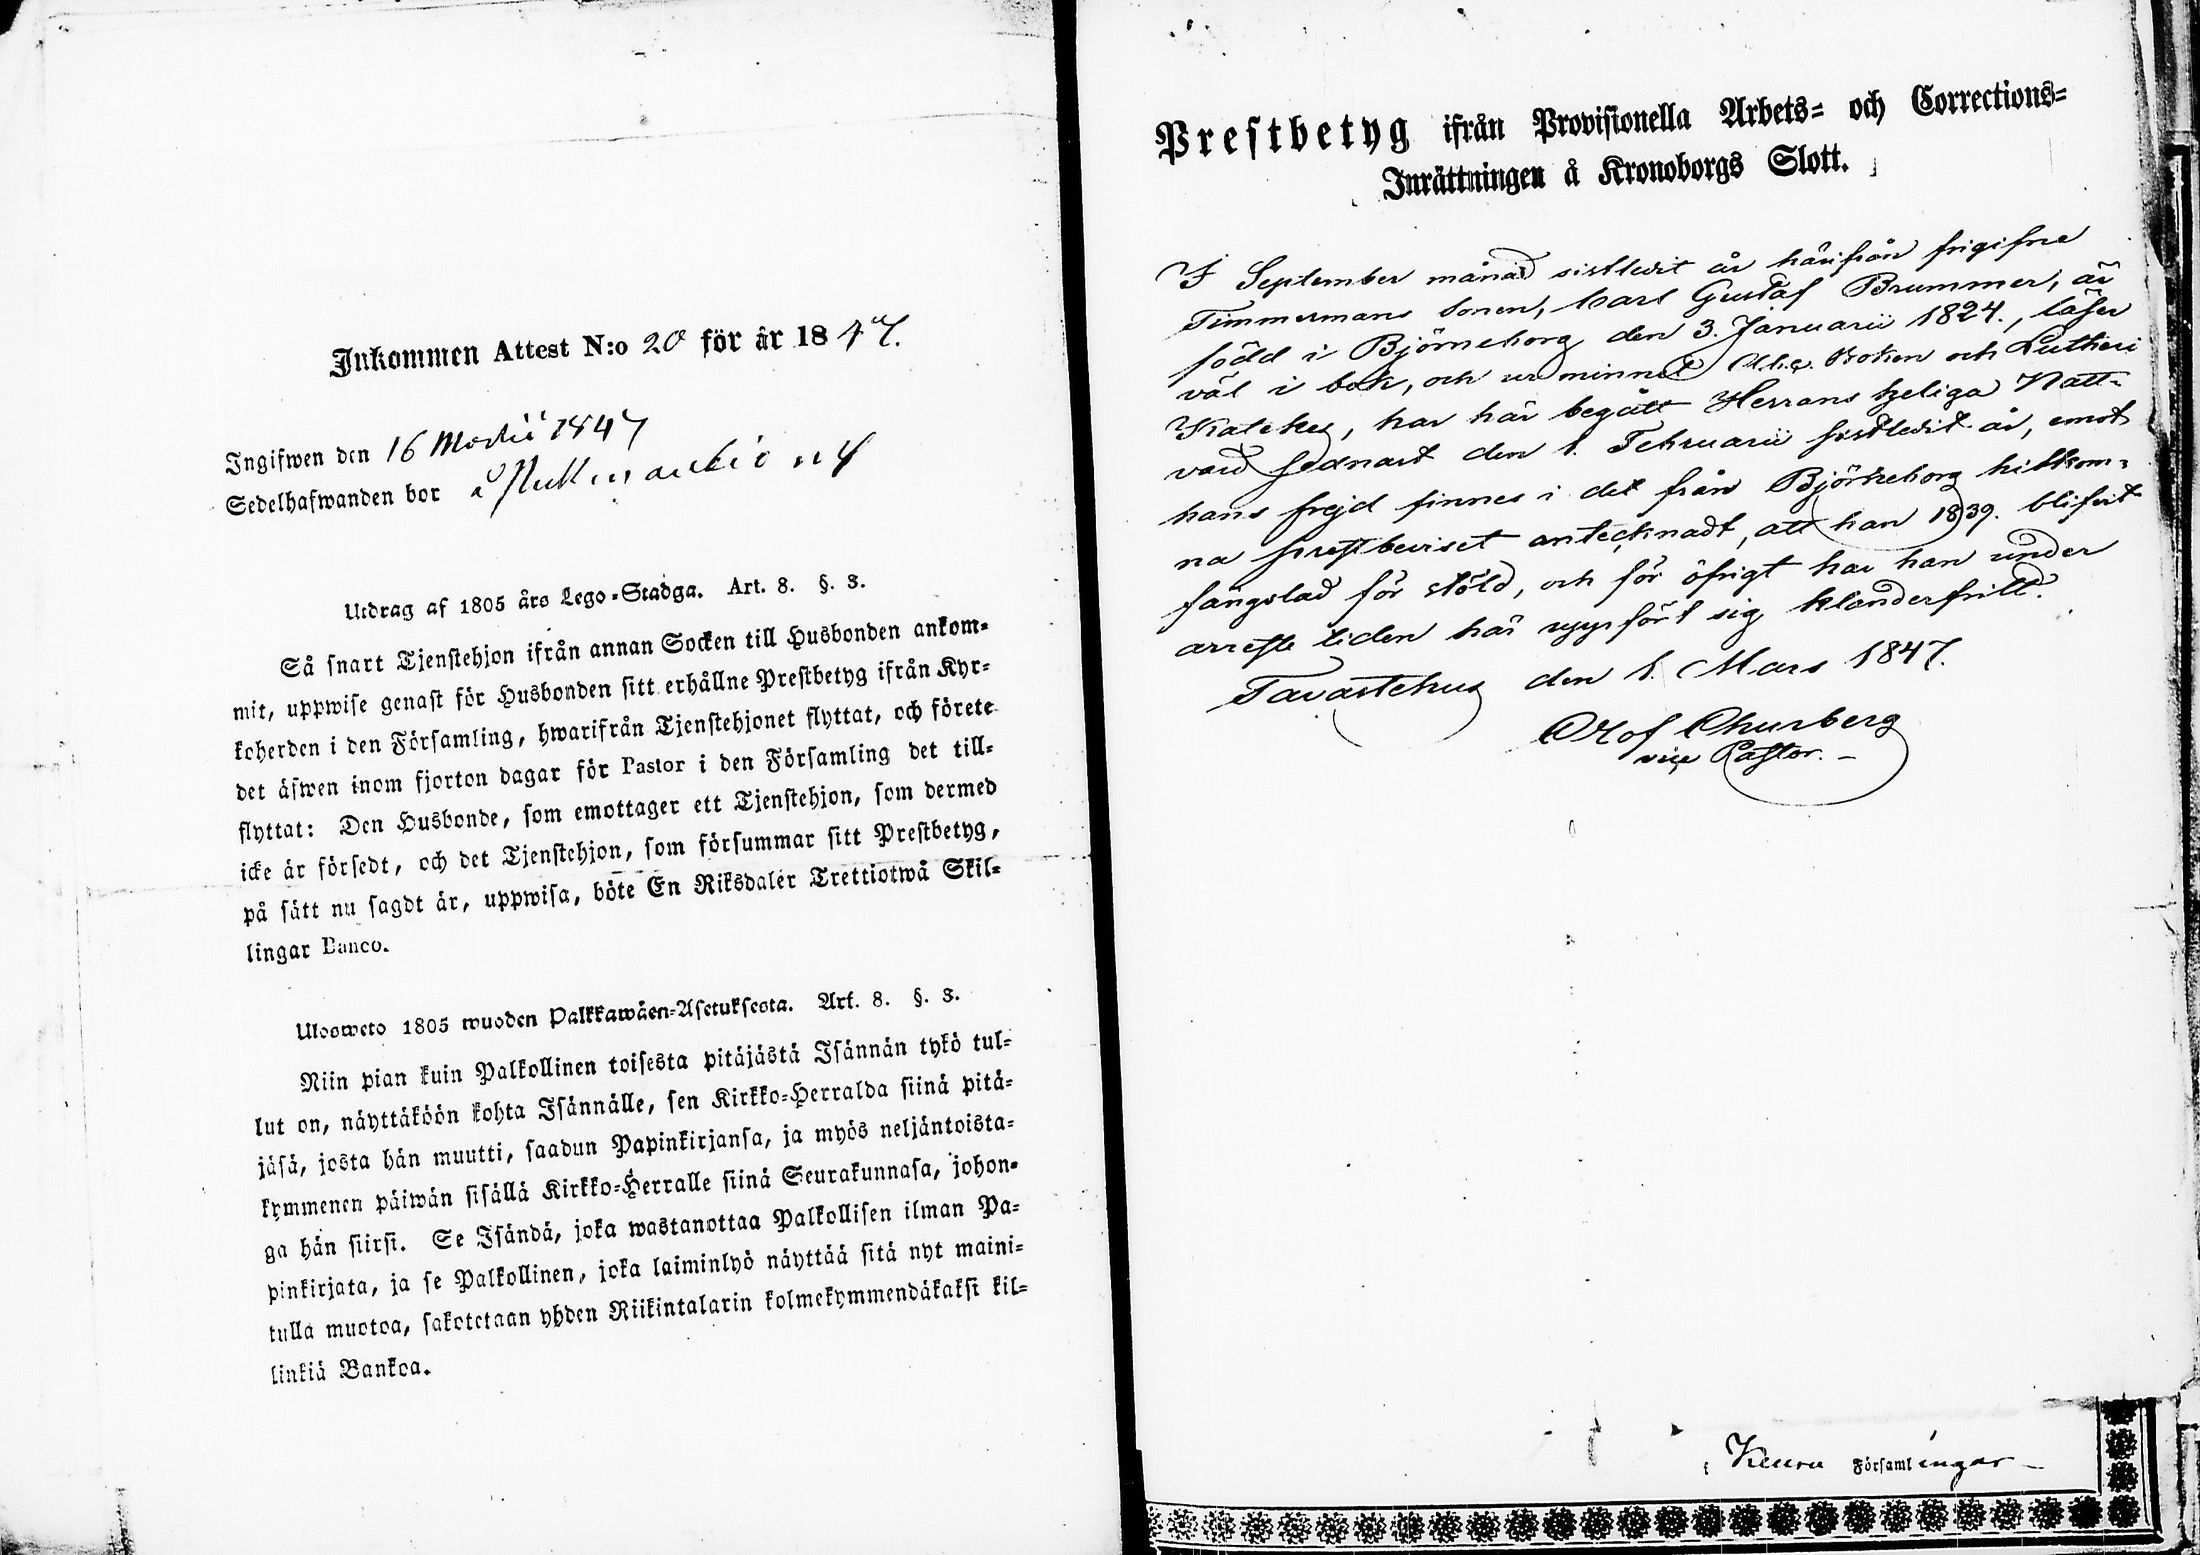 Inkommen Attest N:o 20 för år 1847.
Ingifwen den 16 Martii 1847
Sedelhafwanden bor å
Utdrag af 1805 års Lego-Stadga. Art. 8. §. 3.
Så snart Tjenstehjon ifrån annan Socken till Husbonden ankom-
mit, uppwise genast för Husbonden sitt erhållne Prestbetyg ifrån Kyr-
koherden i den Församling, hwarifrån Tjenstehjonet flyttat, och förete
det äfwen inom fjorton dagar för Pastor i den Församling det till-
flyttat: Den Husbonde, som emottager ett Tjenstehjon, som dermed
icke är försedt, och det Tjenstehjon, som försummar sitt Prestbetyg,
på sätt nu sagdt är, uppwisa, böte En Riksdaler Trettiotwå Skil-
lingar Banco.
Ulosweto 1805 wuoden Palkkawäen-Asetuksesta. Art. 8. §. 3.
Niin pian kuin Palkollinen toisesta pitäjästä Isännän tykö tul-
lut on, näyttäköön kohta Isännälle, sen Kirkko-Herralda siinä pitä-
jäsä, josta hän muutti, saadun Papinkirjansa, ja myös neljäntoista-
kymmenen päiwän sisällä Kirkko-Herralle siinä Seurakunnasa, johon-
ga hän siirsi. Se Isändä, joka wastanottaa Palkollisen ilman Pa-
pinkirjata, ja se Palkollinen, joka laiminlyö näyttää sitä nyt maini-
tulla muotoa, sakotetaan yhden Riikintalarin kolmekymmendäkaksi kil-
linkiä Bankoa.
Prestbetyg ifrån Provisionella Arbets- och Corrections-
Inrättningen å Kronoborgs Slott.
I September månad sistledit år härifrån frigifne
Timmermans Sonen, Karl Gustaf Brummer, är
född i Björneborg den 3. Januarii 1824., läser
väl i bok, och ur minnet Abc. Boken och Lutheri
Kateches, har här begått Herrans heliga Natt-
vard sednast den 1. Februarii sistledit år, emot
hans frejd finnes i det från Björneborg hitkom-
na prestbeviset antecknadt, att han 1839. blifvit
fängslad för stöld, och för öfrigt har han under
arrests tiden här uppfört sig klanderfritt.
Tavastehus den 1. Mars 1847.
Olof Churberg
vice Pastor.
Keuru Församlingar